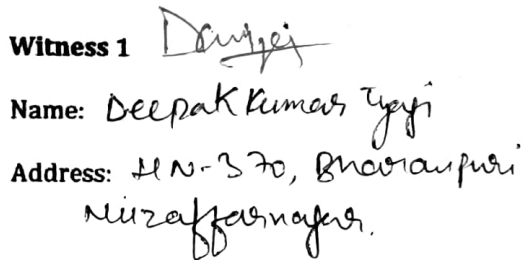 Witness 1
Name: Deepak Kumar Tyagi
Address: HN-370, Bharatpuri
Muzaffarnagar.